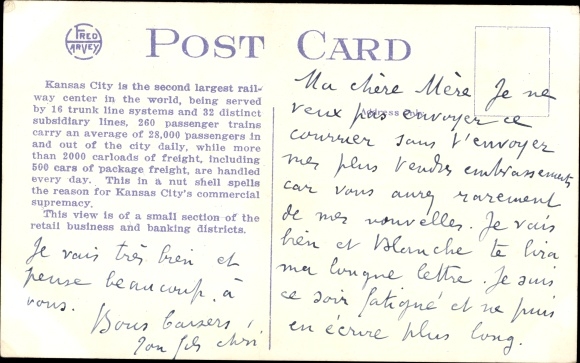 FRED HARVEY
POST CARD
Kansas City is the second largest rail-
way center in the world, being served
by 16 trunk line systems and 32 distinct
subsidiary lines, 260 passenger trains
carry an average of 28,000 passengers in
and out of the city daily, while more
than 2000 carloads of freight, including
500 cars of package freight, are handled
every day. This in a nut shell spells
the reason for Kansas City's commercial
supremacy.
This view is of a small section of the
retail business and banking districts.
Address Only
Ma chère Mère Je ne
veux pas envoyer ce
courrier sans t'envoyer
mes plus tendres embrassements
car vous aurez rarement
de mes nouvelles. Je vais
bien et Blanche te lira
ma longue lettre. Je suis
ce soir fatigué et ne puis
en écrire plus long.
Je vais très bien et
pense beaucoup à
vous.
Bons baisers
ton fils chéri